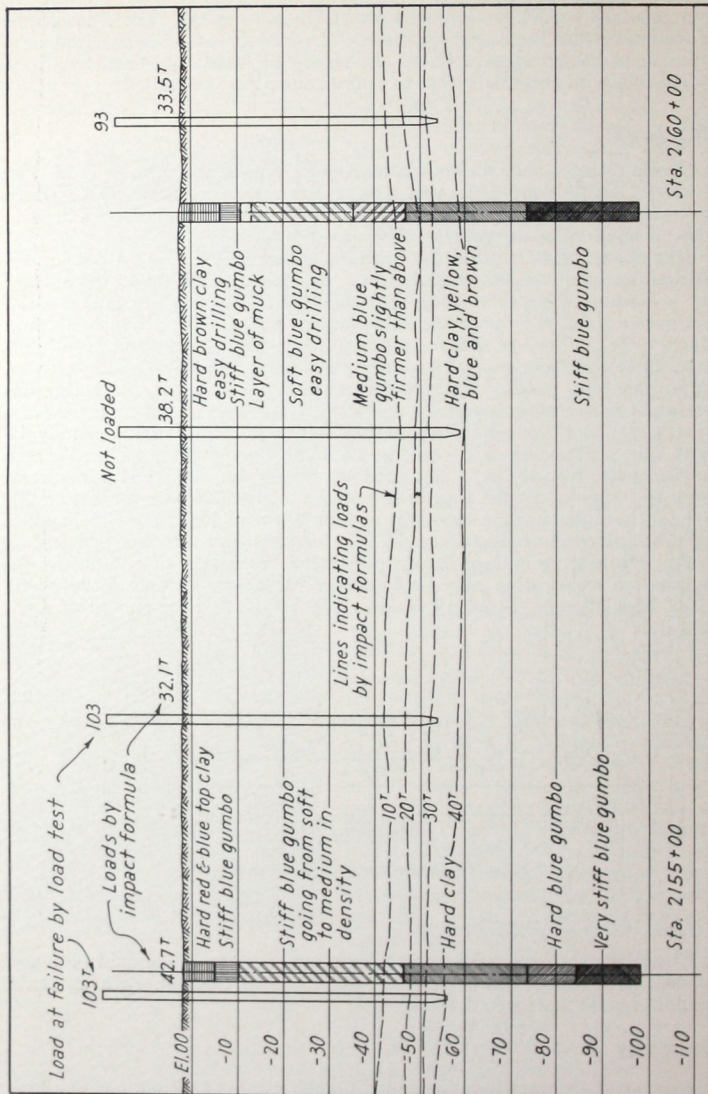 Load at failure by load test
103T
103
Not loaded
93
Loads by
impact formula
42.7T
32.1T
38.2T
33.5T
El.00
-10
-20
-30
-40
-50
-60
-70
-80
-90
-100
-110
Hard red & blue top clay
Stiff blue gumbo
Stiff blue gumbo
going from soft
to medium in
density
Hard clay
Hard blue gumbo
Very stiff blue gumbo
Sta. 2155+00
10T
20T
30T
40T
Lines indicating loads
by impact formulas
Hard brown clay
easy drilling
Stiff blue gumbo
Layer of muck
Soft blue gumbo
easy drilling
Medium blue
gumbo slightly
firmer than above
Hard clay, yellow,
blue and brown
Stiff blue gumbo
Sta. 2160+00